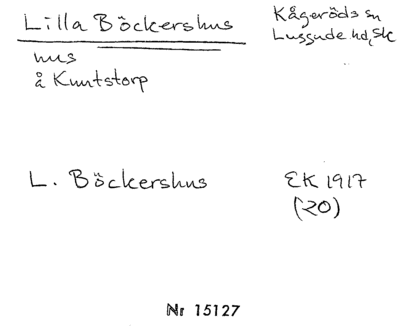 Lilla Böckershus
Kågeröds sn
Luggude hd, Sk
hus
å Knutstorp
L. Böckershus
EK 1917
(20)
Nr 15127